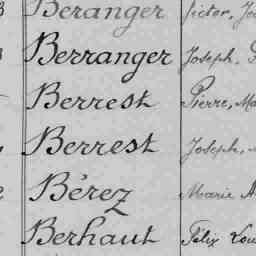 Béranger Victor, Jo
Berranger Joseph,
Berrest Pierre, Ma
Berrest Joseph,
Bérez Marie A
Berhaut Félix Lou